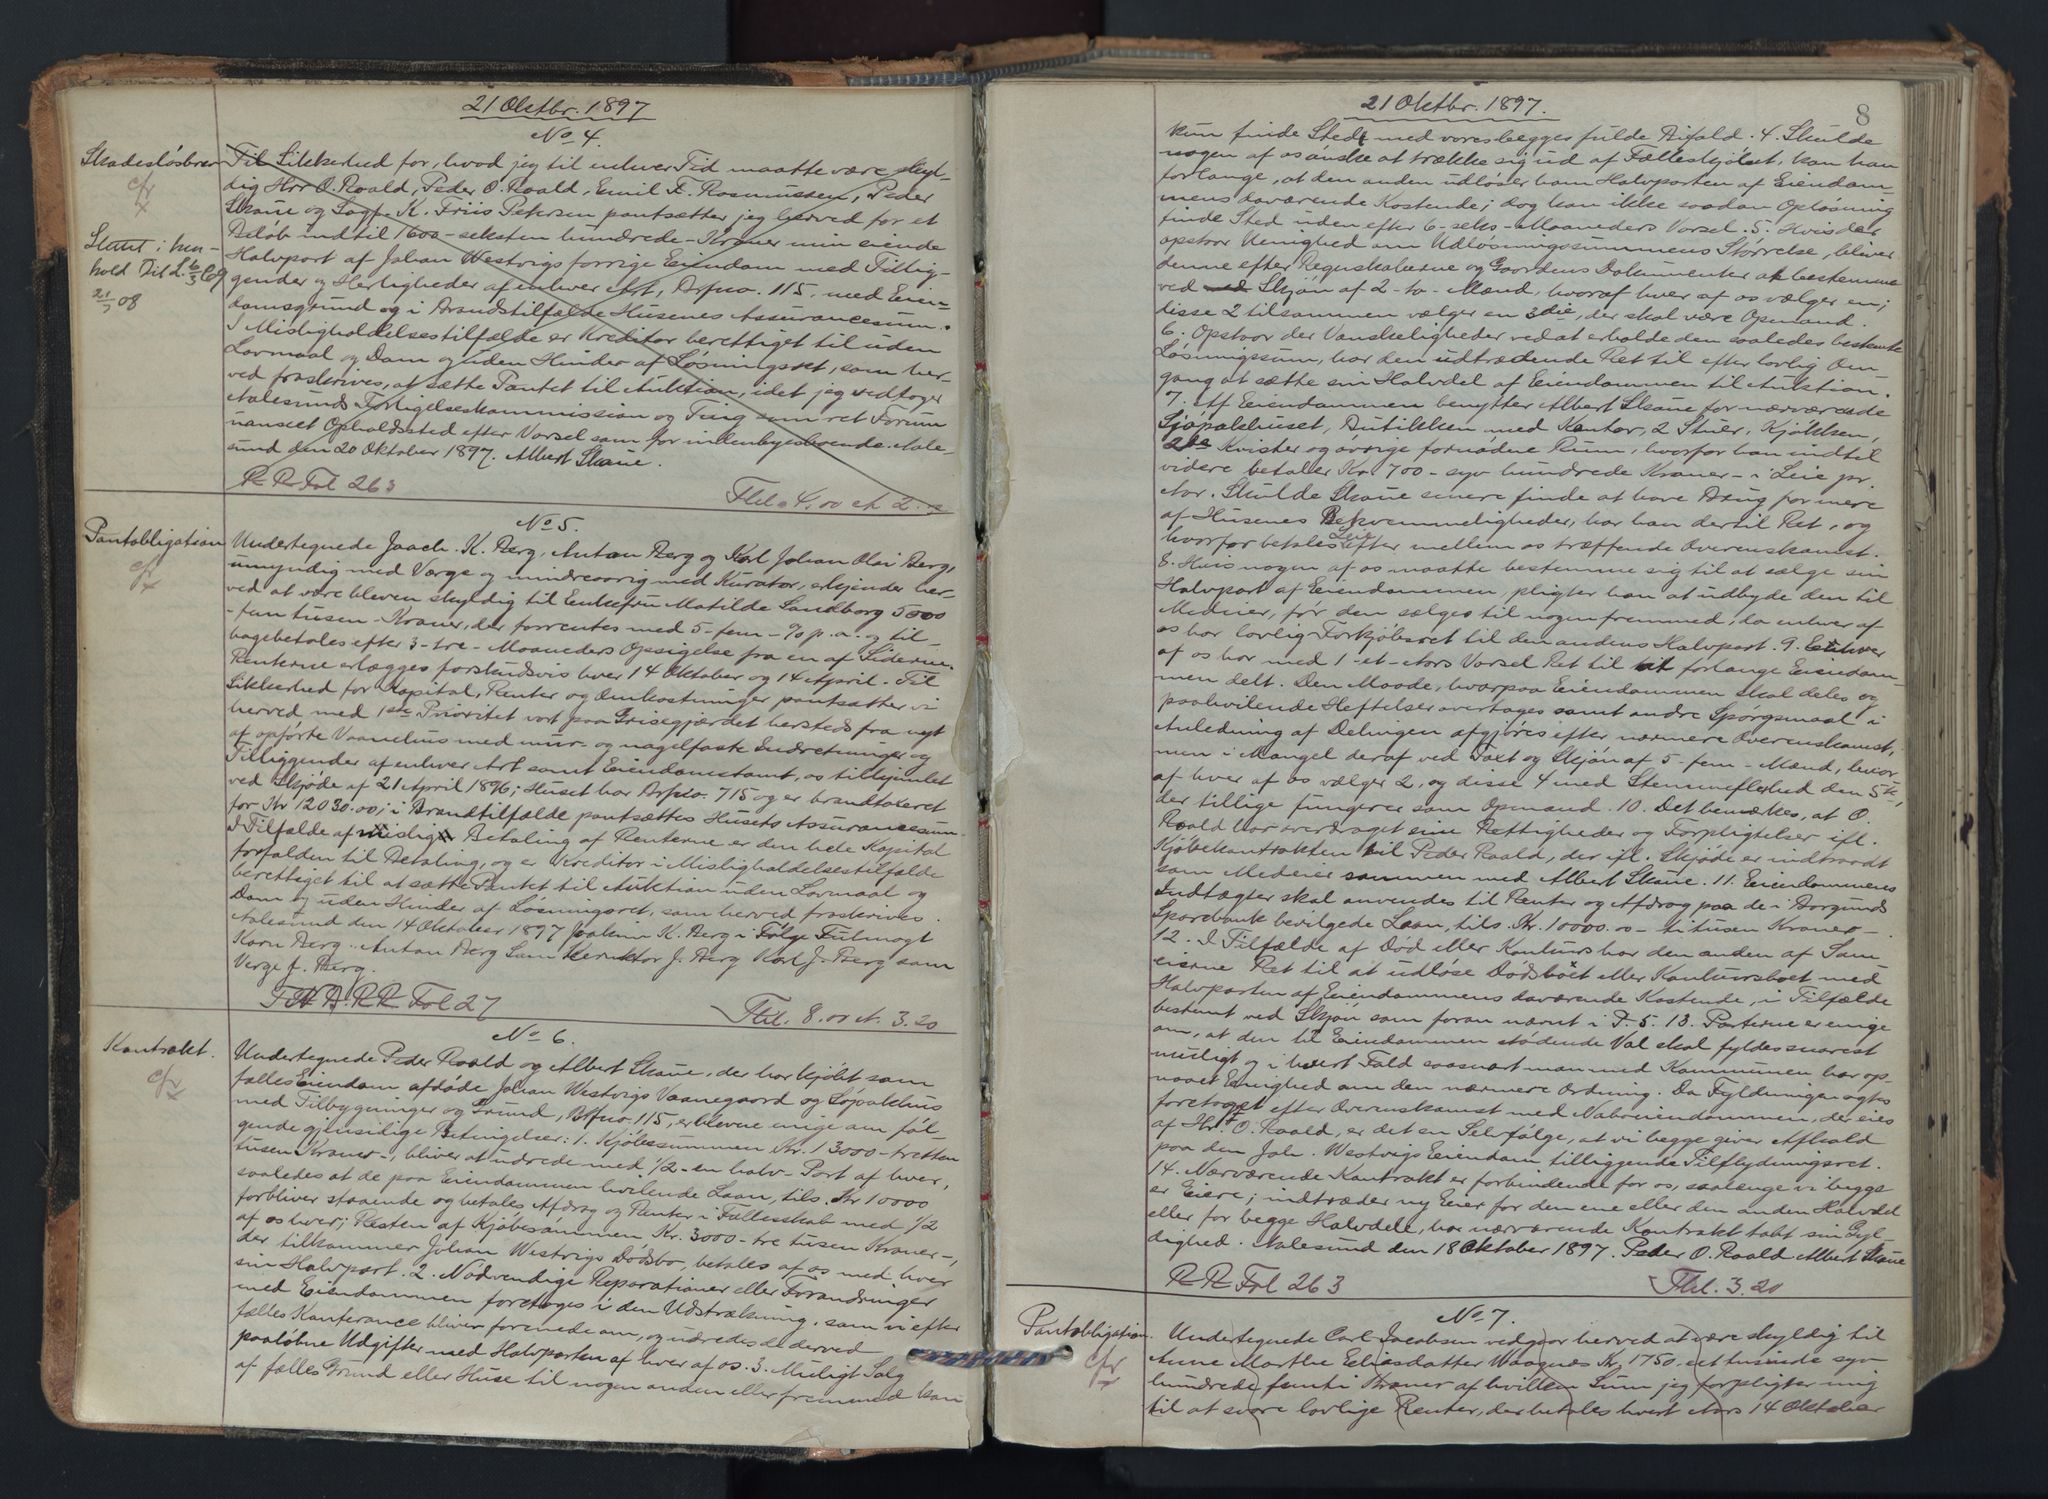 21 Oktbr. 1897
No 4.
Skadesløsbrev
cfr
x
Slettet i hen-
hold til L. 6/3 69
21/3 08
Til Sikkerhed for, hvad jeg til enhver Tid maatte være skyl-
dig Hrr O. Roald, Peder O. Roald, Emil F. Rasmussen, Peder
Skaue og Sagf. K. Friis Petersen pantsætter jeg herved for et
Beløb indtil 1600 - seksten hundrede - Kroner min eiende
Halvpart af Johan Westvigs forrige Eiendom med Tillig-
gender og Herligheder af enhver Art, Brfno. 115, med Eien-
domsgrund og i Brandstilfælde Husenes Assurancesum.
I Misligholdelsestilfælde er Kreditor berettiget til uden
Lovmaal og Dom og uden Hinder af Løsningsret, som her-
ved fraskrives, at sætte Pantet til Auktion, idet jeg vedtager
Aalesunds Forligelseskommission og Ting som ret Forum
uanseet Opholdssted efter Varsel som for indenbyesboende. Aale-
sund den 20 Oktober 1897. Albert Skaue.
P R Fol 263
Tlil. 4.00 A. 2.
No 5.
Pantobligation
cfr
x
Undertegnede Joach. K. Berg, Anton Berg og Karl Johan Olai Berg,
umyndig med Værge og mindreaarig med Kurator, erkjender her-
ved at være bleven skyldig til Enkefru Matilde Sandborg 5000
- fem tusen - Kroner, der forrentes med 5 - fem - % p. a. og til-
bagebetales efter 3 - tre - Maaneders Opsigelse fra en af Siderne.
Renterne erlægges forskudsvis hver 14 Oktober og 14 April. Til
Sikkerhed for Kapital, Renter og Omkostninger pantsætter vi
herved med 1ste Prioritet vort paa Grisegjærdet hersteds fra nyt
af opførte Vaanehus med mur- og nagelfaste Indretninger og
Tilliggender af enhver Art samt Eiendomstomt, os tilskjødet
ved Skjøde af 21 April 1896; Huset har Brfno. 715 og er brandtaxeret
for Kr 12030.00; i Brandtilfælde pantsættes Husets Assurancesum.
I Tilfælde af mislig Betaling af Renterne er den hele Kapital
forfalden til Betaling, og er Kreditor i Misligholdelsestilfælde
berettiget til at sætte Pantet til Auktion uden Lovmaal og
Dom og uden Hinder af Løsningsret, som herved fraskrives.
Aalesund den 14 Oktober 1897 Joakim K. Berg i Følge Fulmagt
Karn Berg. Anton Berg Som Keruktor J. Berg Karl J. Berg som
Verge J. Berg.
P R Fol 27
Tlil. 8.00 A. 3.20
No 6.
Kontrakt.
cfr
x
Undertegnede Peder Roald og Albert Skaue, der har kjøbt som
fælles Eiendom afdøde Johan Westvigs Vaanegaard og Søpakhus
med Tilbygninger og Grund, Brfno. 115, er blevne enige om føl-
gende gjensidige Betingelser: 1. Kjøbesummen Kr. 13000 - tretten
tusen Kroner -, bliver at udrede med 1/2 - en halv - Part af hver,
saaledes at de paa Eiendommen hvilende Laan, tils. Kr 10000
forbliver staaende og betales Afdrag og Renter i Fællesskab med 1/2
af os hver; Resten af Kjøbesummen Kr. 3000 - tre tusen Kroner -,
der tilkommer Johan Westvigs Dødsbo, betales af os med hver
sin Halvpart. 2. Nødvendige Reparationer eller Forandringer
med Eiendommen foretages i den Udstrækning, som vi efter
fælles Konferance bliver forenede om, og udredes de derved
paaløbne Udgifter med Halvparten af hver af os. 3. Muligt Salg
af fælles Grund eller Huse til nogen anden eller fremmed kan
21 Oktbr. 1897.
8
kun finde Sted med vores begges fulde Bifald. 4. Skulde
nogen af os ønske at trække sig ud af Fælleskjøbet, kan han
forlange, at den anden udløser ham Halvparten af Eiendom-
mens daværende Kostende; dog kan ikke saadan Opløsning
finde Sted uden efter 6 - seks - Maaneders Varsel. 5. Hvis der
opstaar Uenighed om Udløsningssummens Størrelse, bliver
denne efter Regnskaberne og Gaardens Dokumenter at bestemme
ved Skjøn af 2 - to - Mænd, hvoraf hver af os vælger en;
disse 2 tilsammen vælger en 3die, der skal være Opmand.
6. Opstaar der Vanskeligheder ved at erholde den saaledes bestemte
Løsningssum, har den udtrædende Ret til efter lovlig Om
gang at sætte sin Halvdel af Eiendommen til Auktion.
7. Af Eiendommen benytter Albert Skaue for nærværende
Sjøpakhuset, Butikken med Kontor, 2 Stuer, Kjøkken,
2de Kvister og øvrige fornødne Rum, hvorfor han indtil
videre betaler Kr. 700 - syv hundrede Kroner - i Leie pr.
Aar. Skulde Skaue senere finde at have Brug for mere
af Husenes Bekvemmeligheder, har han dertil Ret, og
hvorfor betales Leie efter mellem os træffende Overenskomst.
8. Hvis nogen af os maatte bestemme sig til at sælge sin
Halvpart af Eiendommen, pligter han at udbyde den til
Medeier, før den sælges til nogen fremmed, da enhver af
os har lovlig Forkjøbsret til den andens Halvpart. 9. Enhver
af os har med 1 - et - Aars Varsel Ret til at forlange Eiendom-
men delt. Den Maade, hvorpaa Eiendommen skal deles og
paahvilende Heftelser overtages samt andre Spørgsmaal i
Anledning af Delingen afgjøres efter nærmere Overenskomst,
men i Mangel deraf ved Taxt og Skjøn af 5 - fem - Mænd, hvor-
af hver af os vælger 2, og disse 4 med Stemmeflerhed den 5te,
der tillige fungerer som Opmand. 10. Det bemærkes, at O.
Roald har overdraget sine Rettigheder og Forpligtelser ifl.
Kjøbekontrakten til Peder Roald, der ifl. Skjøde er indtraadt
som Medeier sammen med Albert Skaue. 11. Eiendommens
Indtægter skal anvendes til Renter og Afdrag paa de i Borgunds
Sparebank bevilgede Laan, tils. Kr. 10000.00 - ti tusen Kroner -.
12. I Tilfælde af Død eller Konkurs har den anden af Sam
eierne Ret til at udløse Dødsboet eller Konkursboet med
Halvparten af Eiendommens daværende Kostende, i Tilfælde
bestemt ved Skjøn som foran nævnt i P. 5. 13. Parterne er enige
om, at den til Eiendommen stødende Val skal fyldes snarest
muligt og i hvert Fald saasnart man med Kommunen har op-
naaet Enighed om den nærmere Ordning. Da Fyldningen agtes
foretaget efter Overenskomst med Naboeiendommen, der eies
af Hr. O. Roald, er det en Selvfølge, at vi begge giver Afkald
paa den Joh. Westvigs Eiendom tilliggende Tilflydningsret.
14. Nærværende Kontrakt er forbindende for os, saalænge vi begge
er Eiere; indtræder ny Eier for den ene eller den anden Halvdel
eller for begge Halvdele, har nærværende Kontrakt tabt sin Gyl-
dighed. Aalesund den 18 Oktober 1897. Peder O. Roald Albert Skaue
P R Fol 263
Tlil. 3.20
No 7.
Pantobligation.
cfr
x
Undertegnede Carl Jacobsen vedgaar herved at være skyldig til
Anne Marthe Eliasdatter Waagnes Kr. 1750 - et tusinde syv
hundrede femti Kroner af hvilken Sum jeg forpligter mig
til at svare lovlige Renter, der betales hvert Aars 14 Oktober